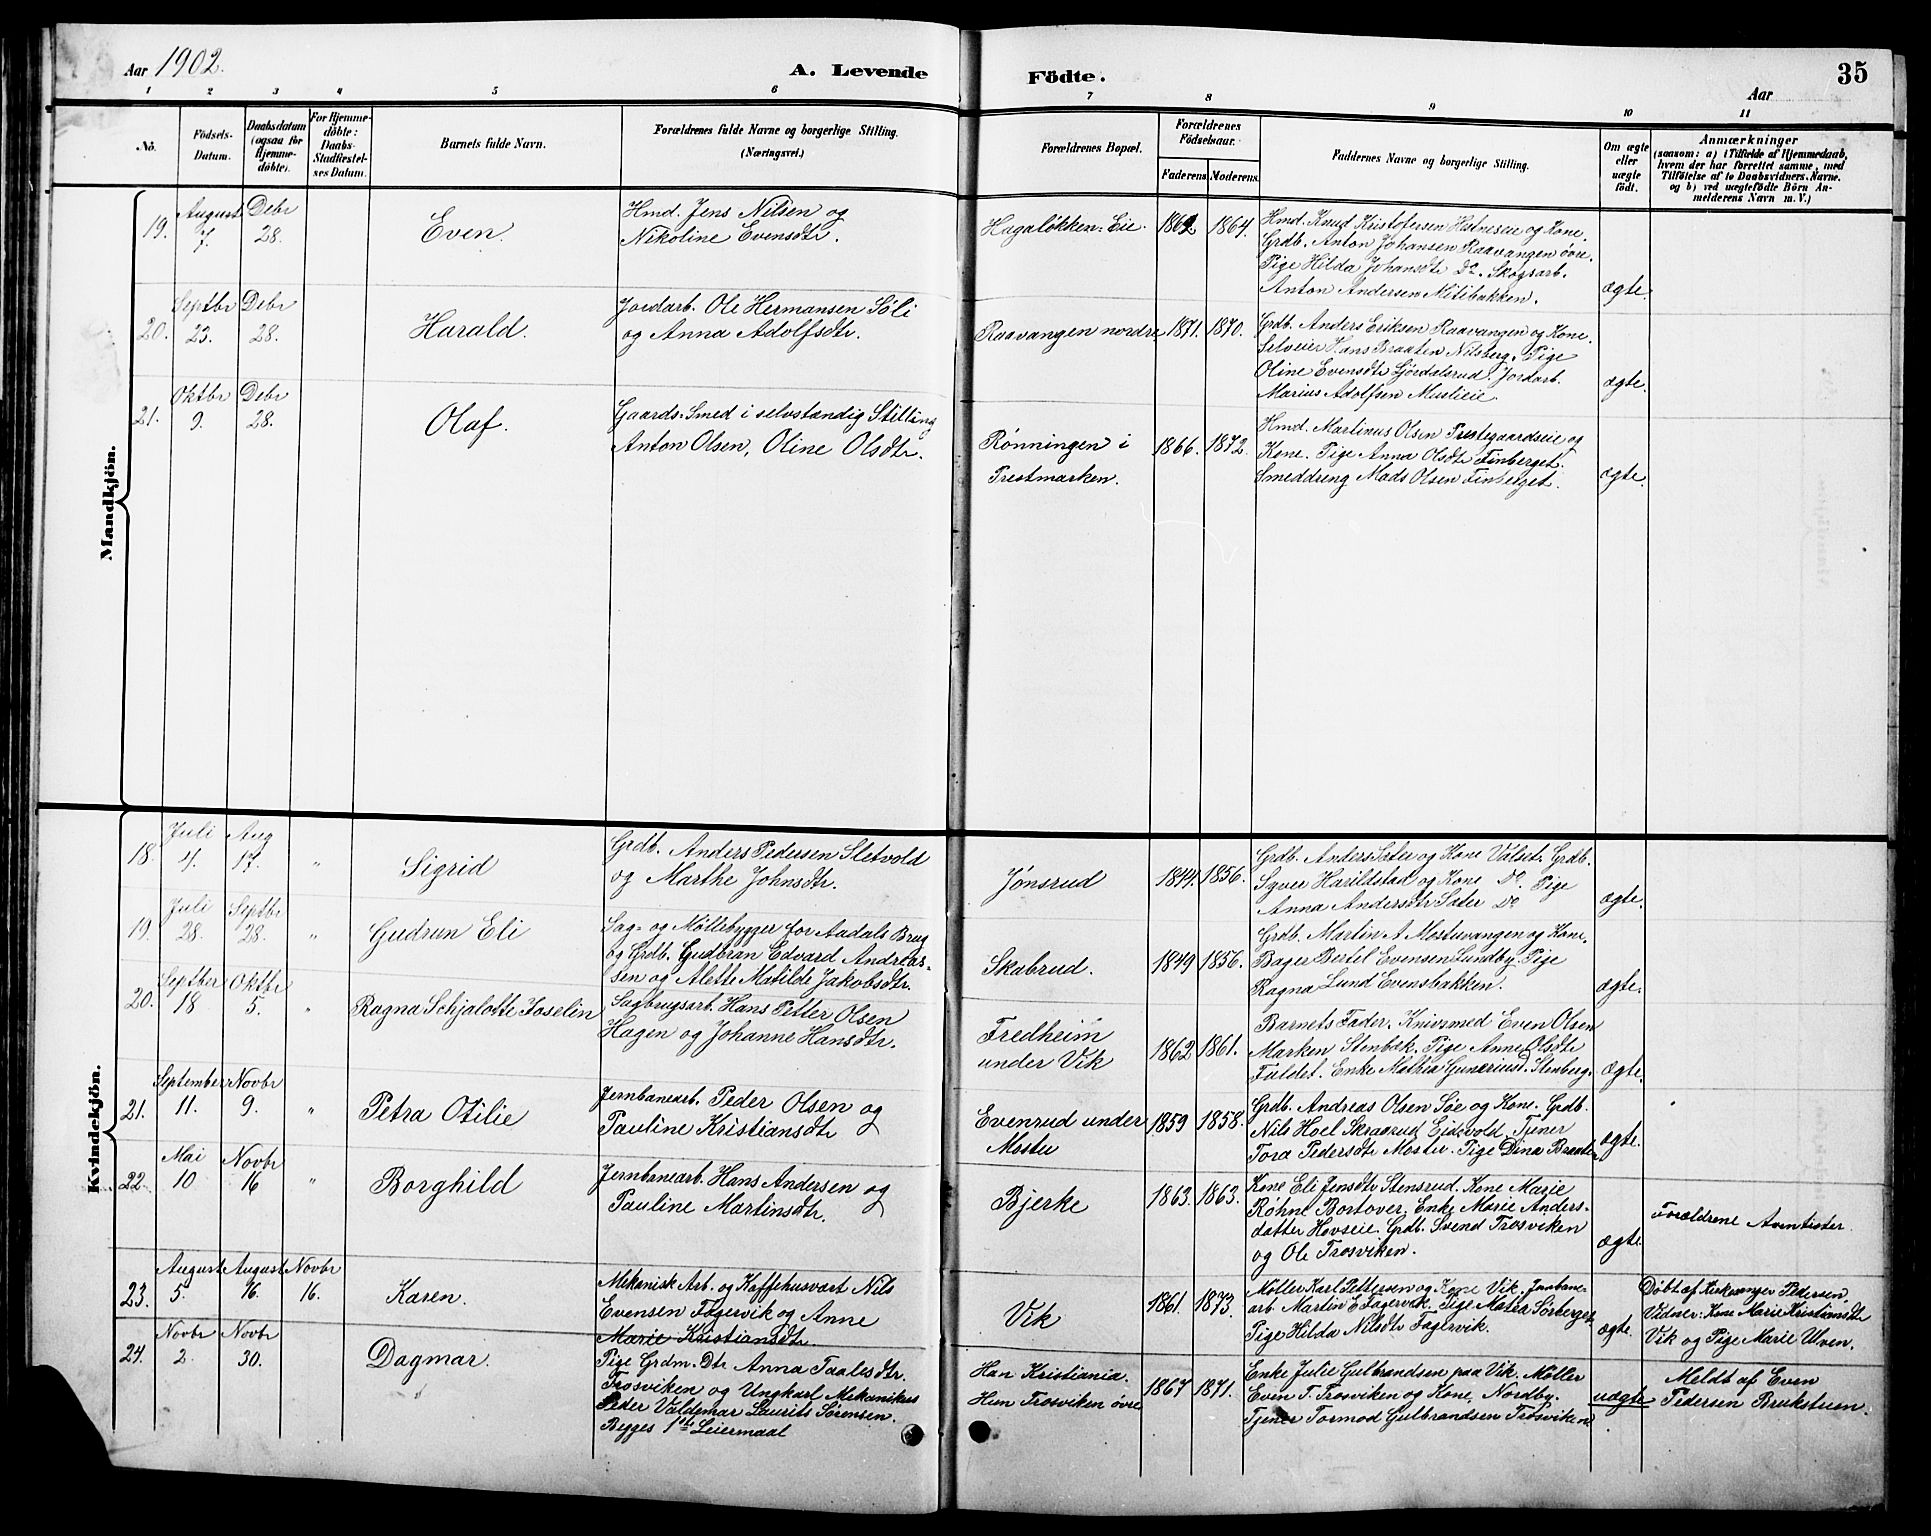 Aar 1902.
A. Levende Födte.
35
Aar
1 2 3 4 5 6 7 8 9 10 11
No.
Födsels-
Datum.
Daabsdatum
(ogsaa for
Hjemme-
døbte).
For Hjemme-
døbte:
Daabs-
Stadfæstel-
ses Datum.
Barnets fulde Navn.
Forældrenes fulde Navne og borgerlige Stilling.
(Næringsvei.)
Forældrenes Bopæl.
Forældrenes
Födselsaar.
Faderens. Moderens.
Faddernes Navne og borgerlige Stilling.
Om ægte
eller
uægte
födt.
Anmærkninger
(saasom: a) i Tilfælde af Hjemmedaab,
hvem der har forrettet samme, med
Tilföielse af to Daabsvidners Navne.
og b) ved uægtefödte Börn An-
melderens Navn m. V.)
Mandkjön.
19.
August
7.
Debr
28.
Even
Hmd. Jens Nilsen og
Nikoline Evensdtr.
Hagaløkken. Eie.
1862 1864.
Hmd. Knud Kristofersen Hetneseie og Kone.
Grdb. Anton Johansen Raavangen øvre.
Pige Hilda Johansdtr Do. Skogsarb.
Anton Andersen Mitibakken.
ægte.
20.
Septbr
23.
Debr
28.
Harald.
Jordarb. Ole Hermansen Söli
og Anna Adolfsdtr.
Raavangen nordre
1871. 1870.
Grdb. Anders Eriksen Raavangen og Kone.
Selveier Hans Braaten Nilsberg. Pige
Oline Evensdtr Gjördalsrud. Jordarb.
Marius Adolfsen Muslieie.
ægte.
21.
Oktbr
9.
Debr
28.
Olaf.
Gaards-Smed i selvstændig Stilling
Anton Olsen, Oline Olsdtr.
Rønningen i
Prestmarken.
1866. 1872.
Hmd. Martinus Olsen Prestegaardseie og
Kone. Pige Anna Olsdtr Finberget.
Smeddreng Mads Olsen Finberget.
ægte.
Kvindekjön.
18.
Juli
4.
Aug
17.
"
Sigrid
Grdb. Anders Pedersen Sletvold
og Marthe Johnsdtr.
Jønsrud
1844. 1856.
Grdb. Anders Sæter og Kone Valset. Grdb.
Syver Harildstad og Kone Do. Pige
Anna Andersdtr Sæter Do
ægte.
19.
Juli
28.
Septbr
28.
"
Gudrun Eli
Sag- og Møllebygger for Aadals Brug
og Grdb. Gudbran Edvard Andreas-
sen og Alette Matilde Jakobsdtr.
Skabrud.
1849 1856.
Grdb. Martin A Mostuvangen og Kone.
Bager Bertel Evensen Lundby. Pige
Ragna Lund Evensbakken.
ægte.
20.
Septber
18
Oktbr
5.
"
Ragna Schjalotte Joselin
Sagbrugsarb. Hans Petter Olsen
Hagen og Johanne Hansdtr.
Fredheim
under Vik
1862 1861.
Barnets Fader. Knivsmed Even Olsen
Marken Stenbæk. Pige Anne Olsdtr
Fuldet. Enke Mathea Gunerius. Stenberg.
ægte.
21.
September
11.
Novbr
9.
"
Petra Otilie
Jernbanearb. Peder Olsen og
Pauline Kristiansdtr
Evenrud under
Mostu
1859 1858.
Grdb. Andreas Olsen Søe og Kone. Grdb.
Nils Hoel Skraarud Eidsvold. Tjener
Tora Pedersdtr Mostu. Pige Dina Braaten
ægte.
22.
Mai
10
Novbr
16
"
Borghild
Jernbanearb. Hans Andersen og
Pauline Martinsdtr.
Bjerke
1863. 1863.
Kone Eli Jensdtr Stensrud. Kone Marie
Røhne Bortover. Enke Marie Anders-
datter Hovseie. Grdb. Svend Trosviken
og Ole Trosviken.
ægte.
Forældrene Aventister.
23.
August
5.
August
16.
Novbr
16.
Karen.
Mekanisk Arb. og Kaffehusvært Nils
Evensen Fagervik og Anne
Marie Kristiansdtr.
Vik
1861. 1873.
Møller Karl Pettersen og Kone Vik. Jernbane-
arb. Martin E Fagervik. Pige Matea Sörberget
Pige Hilda Nilsdtr Fagervik.
ægte.
Döbt af Kirkesanger Pedersen.
Vidner: Kone Marie Kristiansdtr
Vik og Pige Marie Ulven.
24.
Novbr
2.
Novbr
30.
Dagmar.
Pige Grdm. Dtr Anna Taalesdtr.
Trosviken og Ungkarl Mekanikus
Peder Valdemar Laurits Sørensen.
Begges 1ste Leiermaal
Han Kristiania.
Hun Trosviken øvre
1867 1871.
Enke Julie Gulbrandsen paa Vik. Møller
Even T. Trosviken og Kone, Nordby.
Tjener Tormod Gulbrandsen Trosviken
uægte
Meldt af Even
Pedersen Brukstuen.